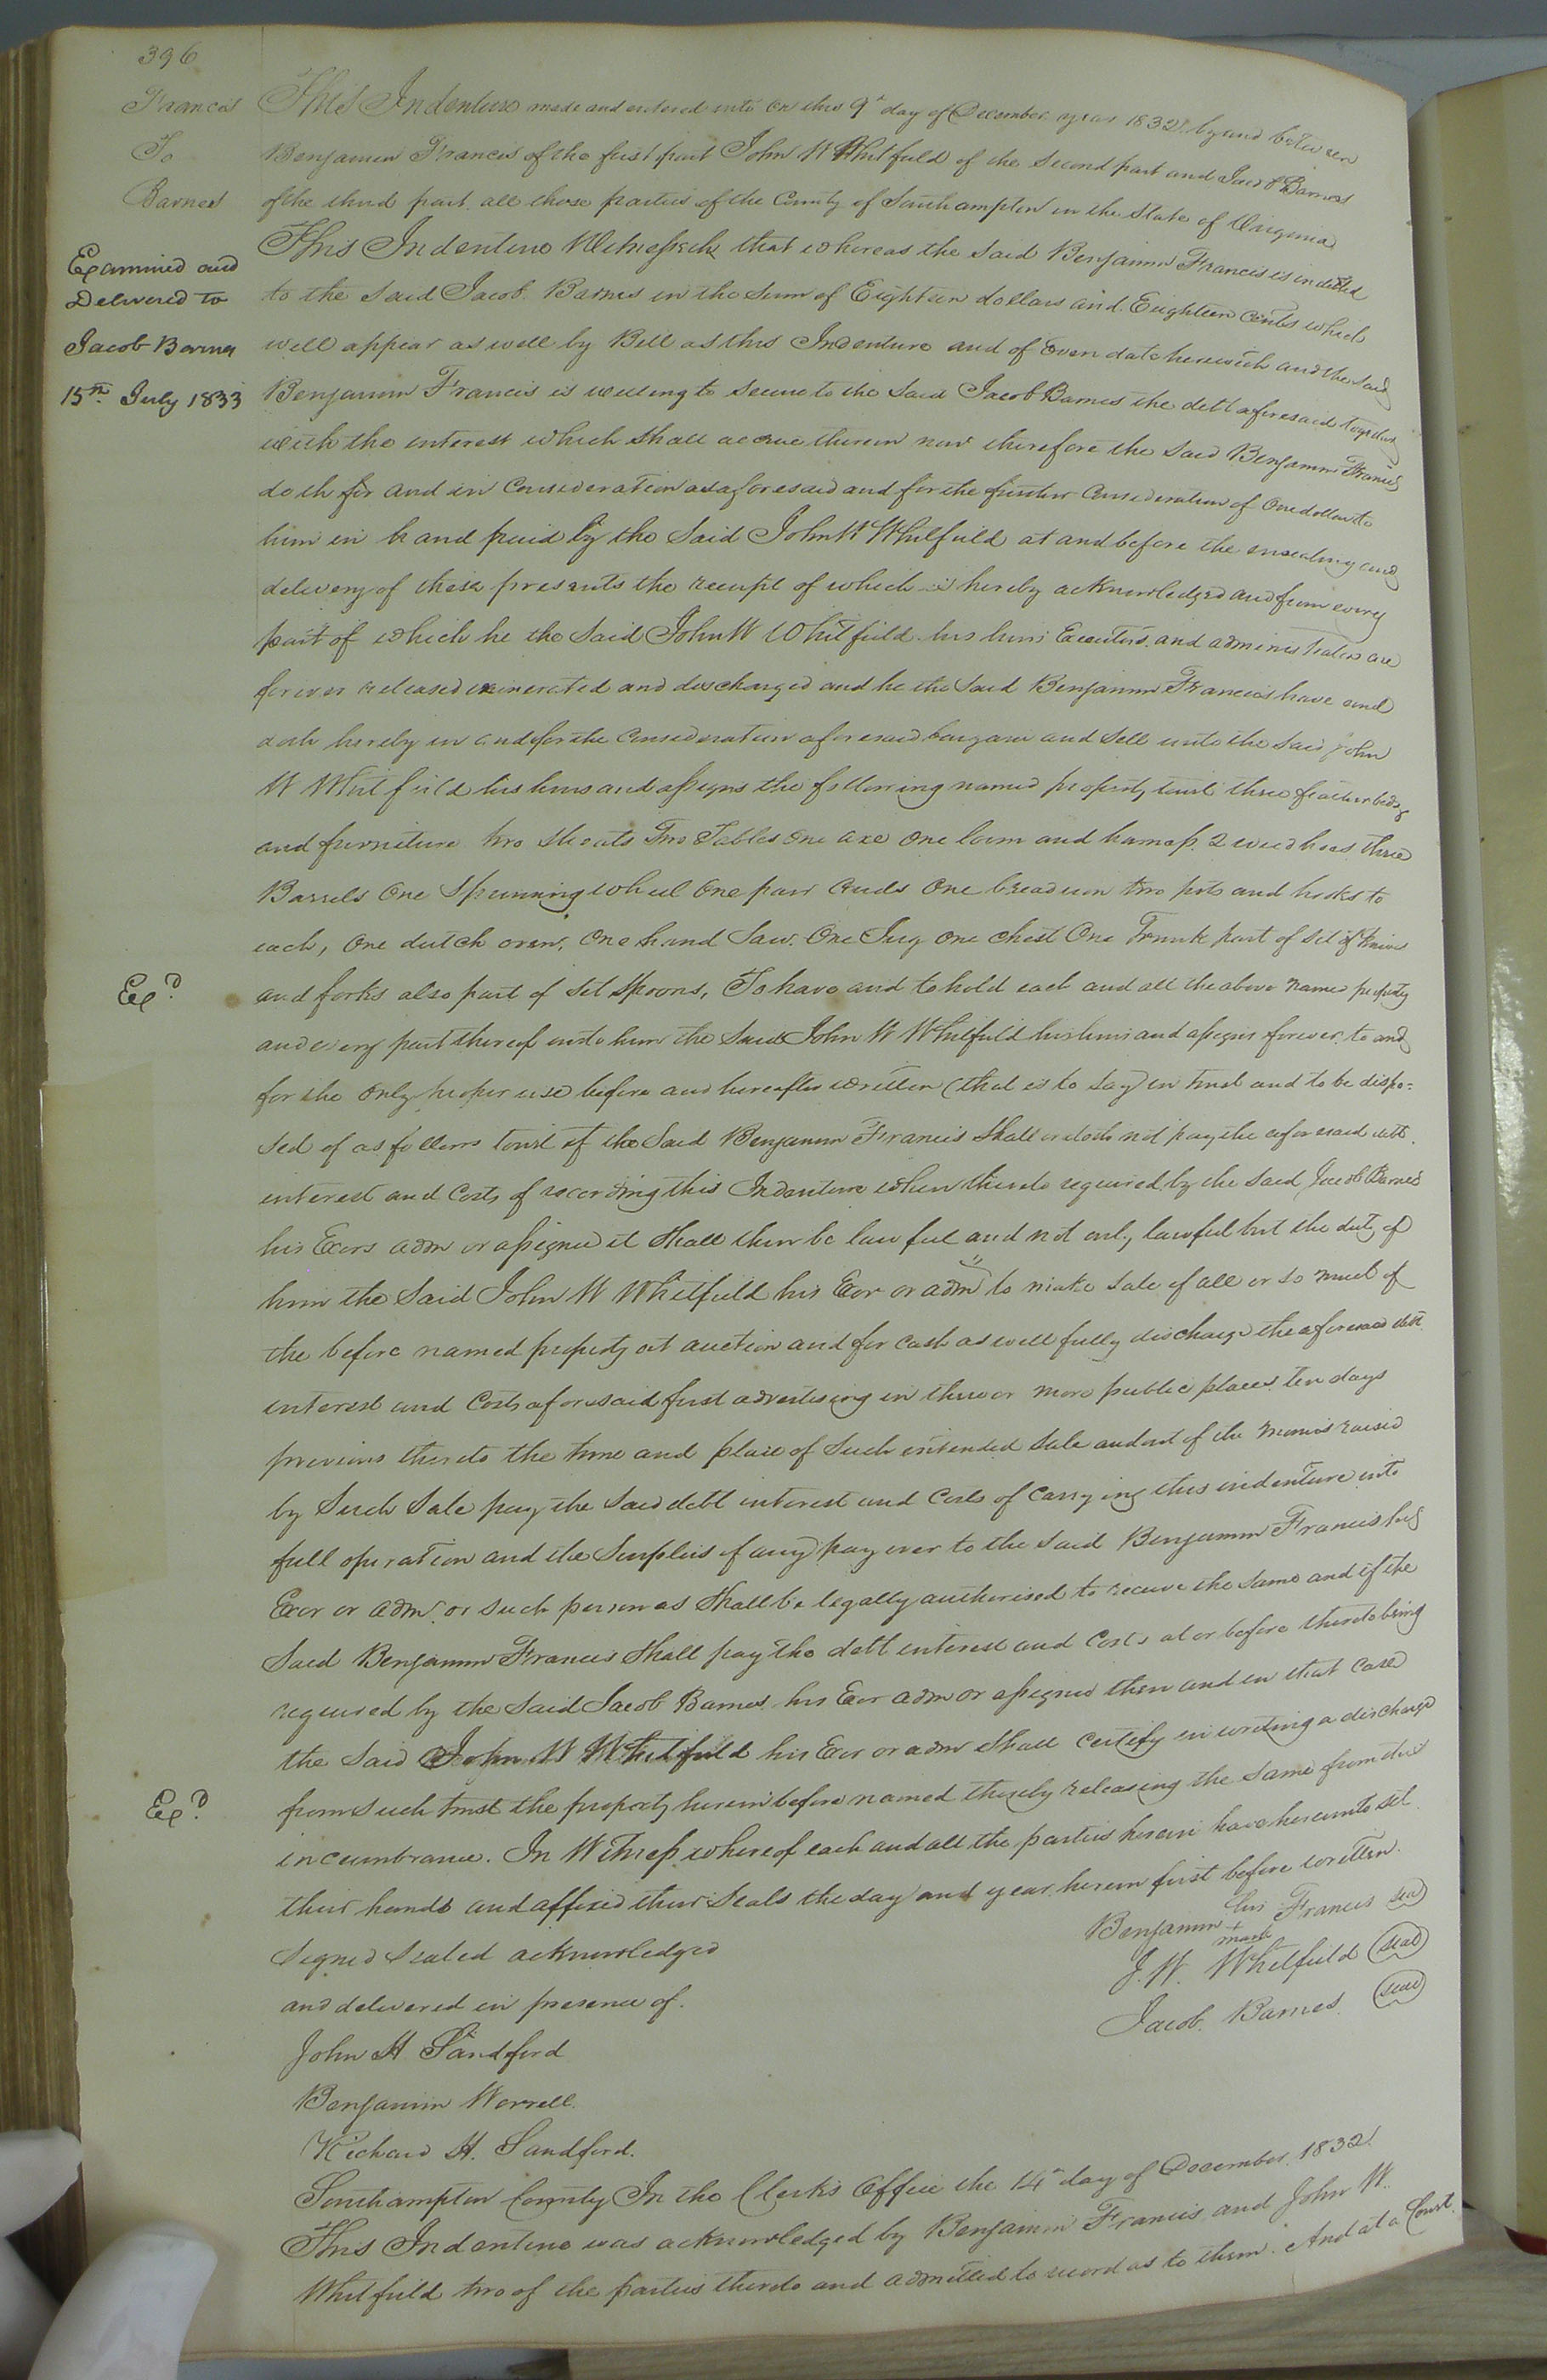 396
Francis
To
Barnes
Examined and
Delivered to
Jacob Barnes
15th July 1833
This Indenture made and entered into on this 9th day of December year 1832 by and between
Benjamin Francis of the first part John W Whitfield of the second part and Jacob Barnes
of the third part all these parties of the County of Southampton in the State of Virginia
This Indenture Witnesseth that whereas the said Benjamin Francis is indebted
to the said Jacob Barnes in the sum of Eighteen dollars and Eighteen Cents which
will appear as well by Bill as this Indenture and of even date herewith and the said
Benjamin Francis is willing to secure to the said Jacob Barnes the debt aforesaid together
with the interest which shall accrue therein now therefore the said Benjamin Francis
doth for and in Consideration as aforesaid and for the further Consideration of One dollar to
him in hand paid by the said John W Whitfield at and before the ensealing and
delivery of these presents the receipt of which is hereby acknowledged and from every
part of which he the said John W Whitfield his heirs Executors and administrators are
forever released exonerated and discharged and he the said Benjamin Francis have and
doth hereby in and for the Consideration aforesaid bargain and sell unto the said John
W Whitfield his heirs and assigns the following named property towit three feather beds
and furniture two sheats Two Tables One axe One loom and harness 2 weed hoes three
Barrels One Spinning wheel One pair Cards One bread iron two pots and hooks to
each, One dutch oven, One hand Saw. One Jug One Chest One Trunk part of set of knives
Exd
and forks also part of set spoons, To have and to hold each and all the above named property
and every part thereof unto him the said John W Whitfield his heirs and assigns forever to and
for the only proper use before and hereafter written (that is to say) in trust and to be dispo=
sed of as follows towit if the said Benjamin Francis shall or doth not pay the aforesaid debt
interest and Costs of recording this Indenture when thereto required by the said Jacob Barnes
his Exors adm or assignee it shall then be lawful and not only lawful but the duty of
him the said John W Whitfield his Exor or adm to make sale of all or so much of
the before named property at auction and for cash as will fully discharge the aforesaid debt
interest and Costs aforesaid first advertising in three or more public places ten days
previous thereto the time and place of such intended sale and out of the monies raised
by such sale pay the said debt interest and Costs of carrying this indenture into
full operation and the surplus if any pay over to the said Benjamin Francis his
Exor or adm or such person as shall be legally authorised to receive the same and if the
said Benjamin Francis shall pay the debt interest and Costs at or before thereto being
required by the said Jacob Barnes his Exor adm or assignee then and in that case
the said John W Whitfield his Exor or adm shall certify in writing a discharge
Exd
from such trust the property herein before named thereby releasing the same from due
incumbrance. In Witness whereof each and all the parties herein have hereunto set
their hands and affixed their Seals the day and year herein first before written.
Signed sealed acknowledged
and delivered in presence of.
Benjamin his + mark Francis seal
J. W. Whitfield seal
Jacob Barnes seal
John H Sandford
Benjamin Worrell
Richard H. Sandford.
Southampton County In the Clerks Office the 14th day of December 1832.
This Indenture was acknowledged by Benjamin Francis and John W.
Whitfield two of the parties thereto and admitted to record as to them. And at a Court